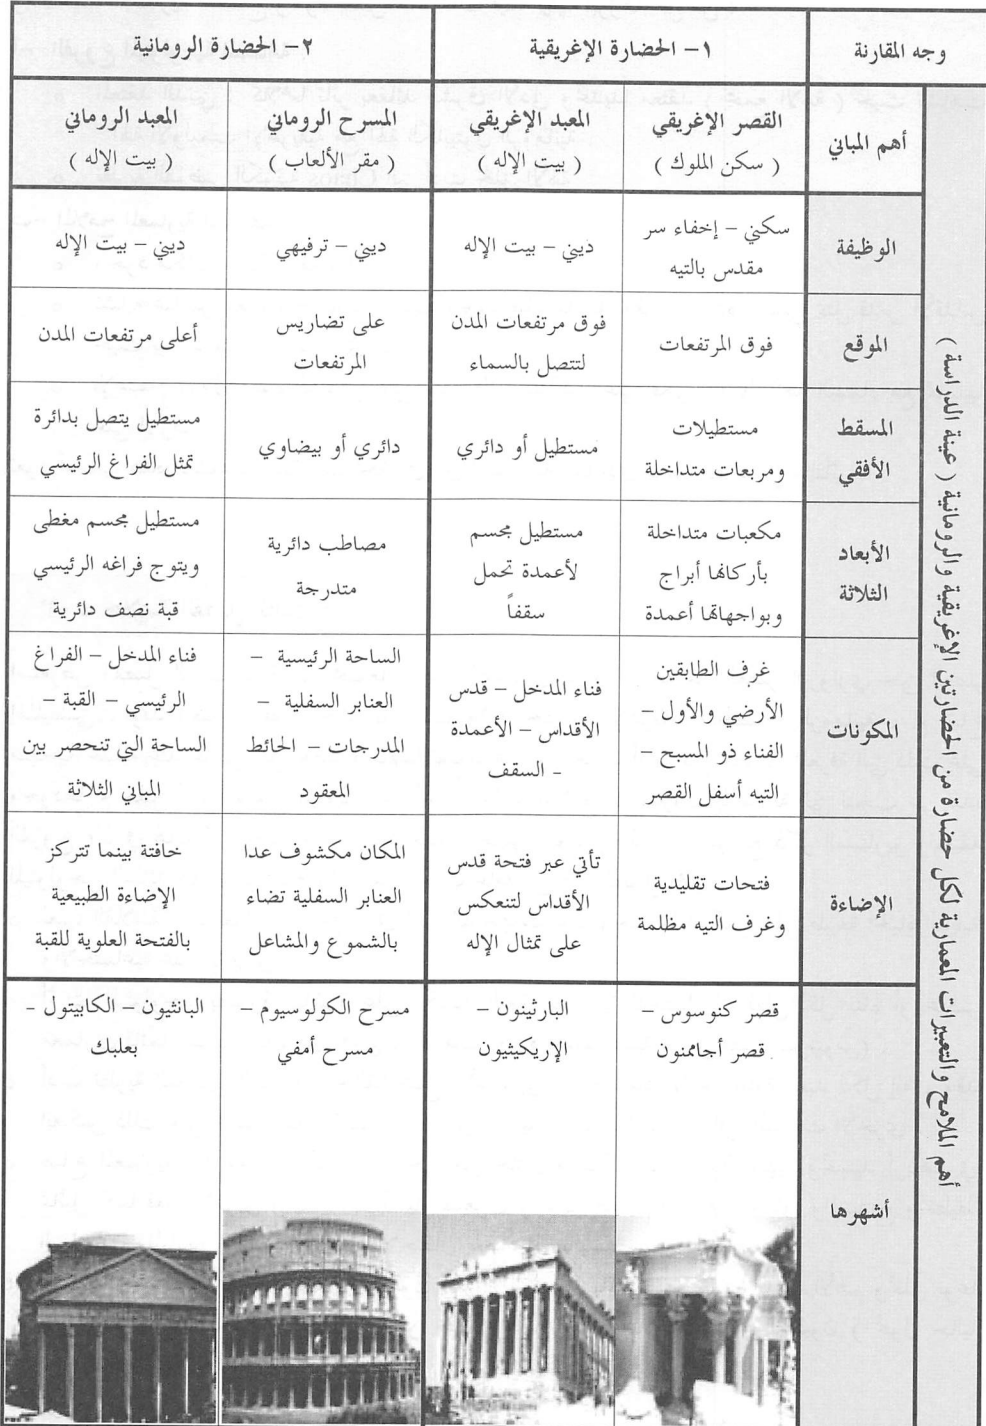 وجه المقارنة
١– الحضارة الإغريقية
٢– الحضارة الرومانية
أهم الملامح والتعبيرات المعمارية لكل حضارة من الحضارتين الإغريقية والرومانية ( عينة الدراسة )
أهم المباني
القصر الإغريقي
( سكن الملوك )
المعبد الإغريقي
( بيت الإله )
المسرح الروماني
( مقر الألعاب )
المعبد الروماني
( بيت الإله )
الوظيفة
سكني – إخفاء سر
مقدس بالتيه
ديني – بيت الإله
ديني – ترفيهي
ديني – بيت الإله
الموقع
فوق المرتفعات
فوق مرتفعات المدن
لتتصل بالسماء
على تضاريس
المرتفعات
أعلى مرتفعات المدن
المسقط
الأفقي
مستطيلات
ومربعات متداخلة
مستطيل أو دائري
دائري أو بيضاوي
مستطيل يتصل بدائرة
تمثل الفراغ الرئيسي
الأبعاد
الثلاثة
مكعبات متداخلة
بأركانها أبراج
وبواجهاتها أعمدة
مستطيل مجسم
لأعمدة تحمل
سقفاً
مصاطب دائرية
متدرجة
مستطيل مجسم مغطى
ويتوج فراغه الرئيسي
قبة نصف دائرية
المكونات
غرف الطابقين
الأرضي والأول –
الفناء ذو المسبح –
التيه أسفل القصر
فناء المدخل – قدس
الأقداس – الأعمدة
- السقف
الساحة الرئيسية –
العنابر السفلية –
المدرجات – الحائط
المعقود
فناء المدخل – الفراغ
الرئيسي – القبة –
الساحة التي تنحصر بين
المباني الثلاثة
الإضاءة
فتحات تقليدية
وغرف التيه مظلمة
تأتي عبر فتحة قدس
الأقداس لتنعكس
على تمثال الإله
المكان مكشوف عدا
العنابر السفلية تضاء
بالشموع والمشاعل
خافتة بينما تتركز
الإضاءة الطبيعية
بالفتحة العلوية للقبة
أشهرها
قصر كنوسوس –
قصر أجاممنون
البارثينون –
الإريكيثيون
مسرح الكولوسيوم –
مسرح أمفي
البانثيون – الكابيتول -
بعلبك